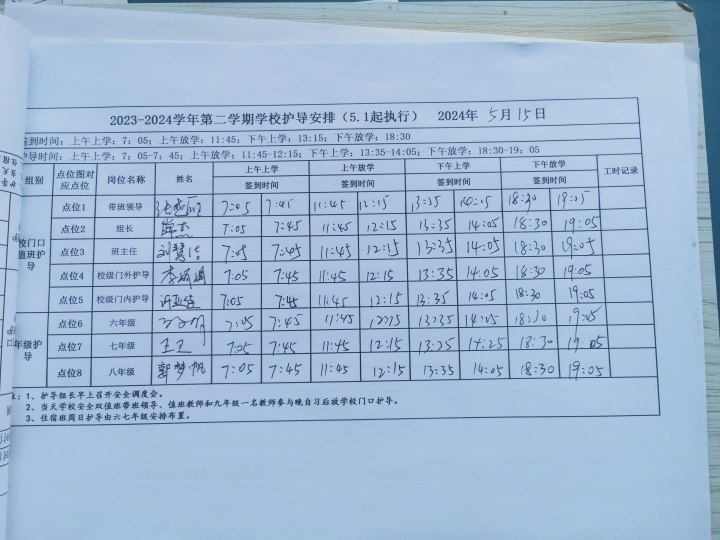 2023-2024学年第二学期学校护导安排（5.1起执行） 2024年 5月15日
签到时间：上午上学：7：05；上午放学：11:45；下午上学：13:15；下午放学：18:30
护导时间：上午上学：7：05-7：45；上午放学：11:45-12:15；下午上学：13:35-14:05；下午放学：18:30-19：05
组别 点位图对应点位 岗位名称 姓名 上午上学 上午放学 下午上学 下午放学 工时记录
签到时间 签到时间 签到时间 签到时间
校门口值班护导
点位1 带班领导 7:05 7:45 11:45 12:15 13:35 14:05 18:30 19:05
点位2 组长 7:05 7:45 11:45 12:15 13:35 14:05 18:30 19:05
点位3 班主任 7:05 7:45 11:45 12:15 13:35 14:05 18:30 19:05
点位4 校级门外护导 7:05 7:45 11:45 12:15 13:35 14:05 18:30 19:05
点位5 校级门内护导 7:05 7:45 11:45 12:15 13:35 14:05 18:30 19:05
年级护导
点位6 六年级 7:05 7:45 11:45 12:15 13:35 14:05 18:30 19:05
点位7 七年级 7:05 7:45 11:45 12:15 13:25 14:25 18:30 19:05
点位8 八年级 郭梦帆 7:05 7:45 11:45 12:15 13:35 14:05 18:30 19:05
注：1、护导组长早上召开安全调度会。
2、当天学校安全双值班带班领导、值班教师和九年级一名教师参与晚自习后放学校门口护导。
3、住宿班周日护导由六七年级安排布置。